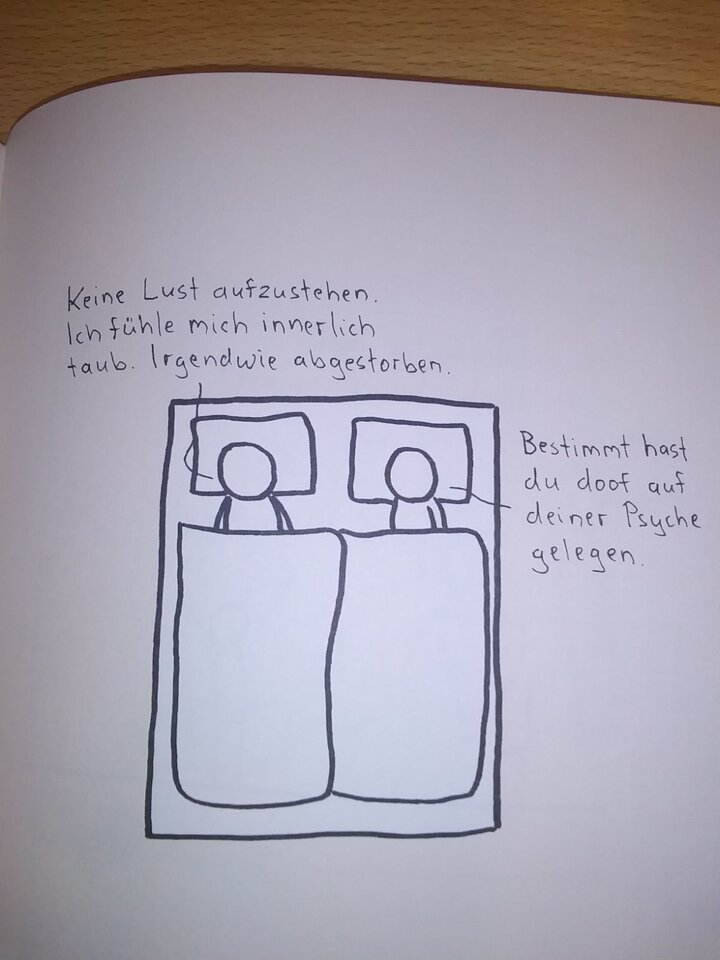 Keine Lust aufzustehen.
Ich fühle mich innerlich
taub. Irgendwie abgestorben.
Bestimmt hast
du doof auf
deiner Psyche
gelegen.